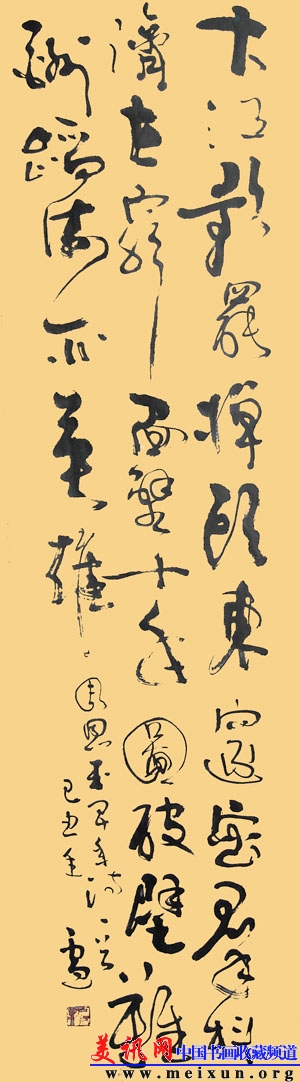 大江歌罷掉頭東邃密群科
濟世窮面壁十年圖破壁難
酬蹈海亦英雄
周恩来早年诗一首
己丑年
美讯网 中国书画收藏频道
www.meixun.org